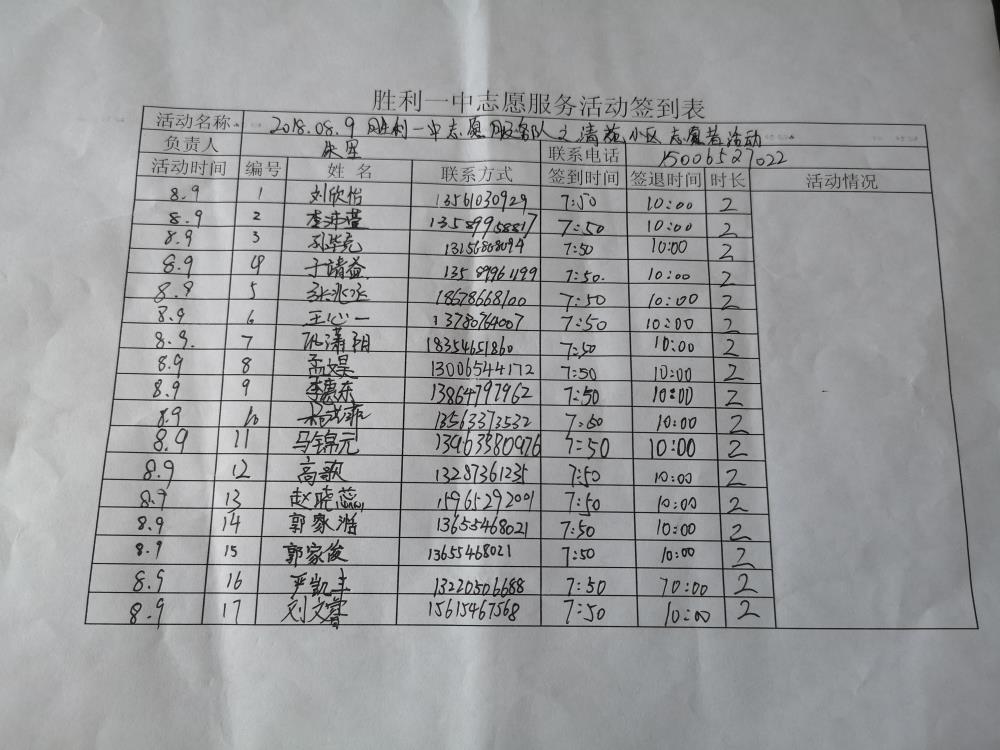 胜利一中志愿服务活动签到表
活动名称 2018.08.9 胜利一中志愿服务队之清苑小区志愿者活动
负责人 联系电话 15006527022
活动时间 编号 姓名 联系方式 签到时间 签退时间 时长 活动情况
8.9 1 刘欣怡 13561030929 7:50 10:00 2
8.9 2 13589958817 7:50 10:00 2
8.9 3 13156868094 7:50 10:00 2
8.9 4 于靖益 13589961199 7:50. 10:00 2
8.9 5 张兆丞 18678668100 7:50 10:00 2
8.9 6 王心一 13780764007 7:50 10:00 2
8.9. 7 18354651860 7:50 10:00 2
8.9 8 孟文昊 13006544172 7:50 10:00 2
8.9 9 李惠东 13864797962 7:50 10:00 2
8.9 10 13563373532 7:50 10:00 2
8.9 11 马锦元 13963380976 7:50 10:00 2
8.9 12 高歌 13287361235 7:50 10:00 2
8.9 13 赵晓蕊 15965292001 7:50 10:00 2
8.9 14 郭家 13655468021 7:50 10:00 2
8.9 15 郭家俊 13655468021 7:50 10:00 2
8.9 16 严凯丰 13220506688 7:50 10:00 2
8.9 17 刘文睿 15615467568 7:50 10:00 2